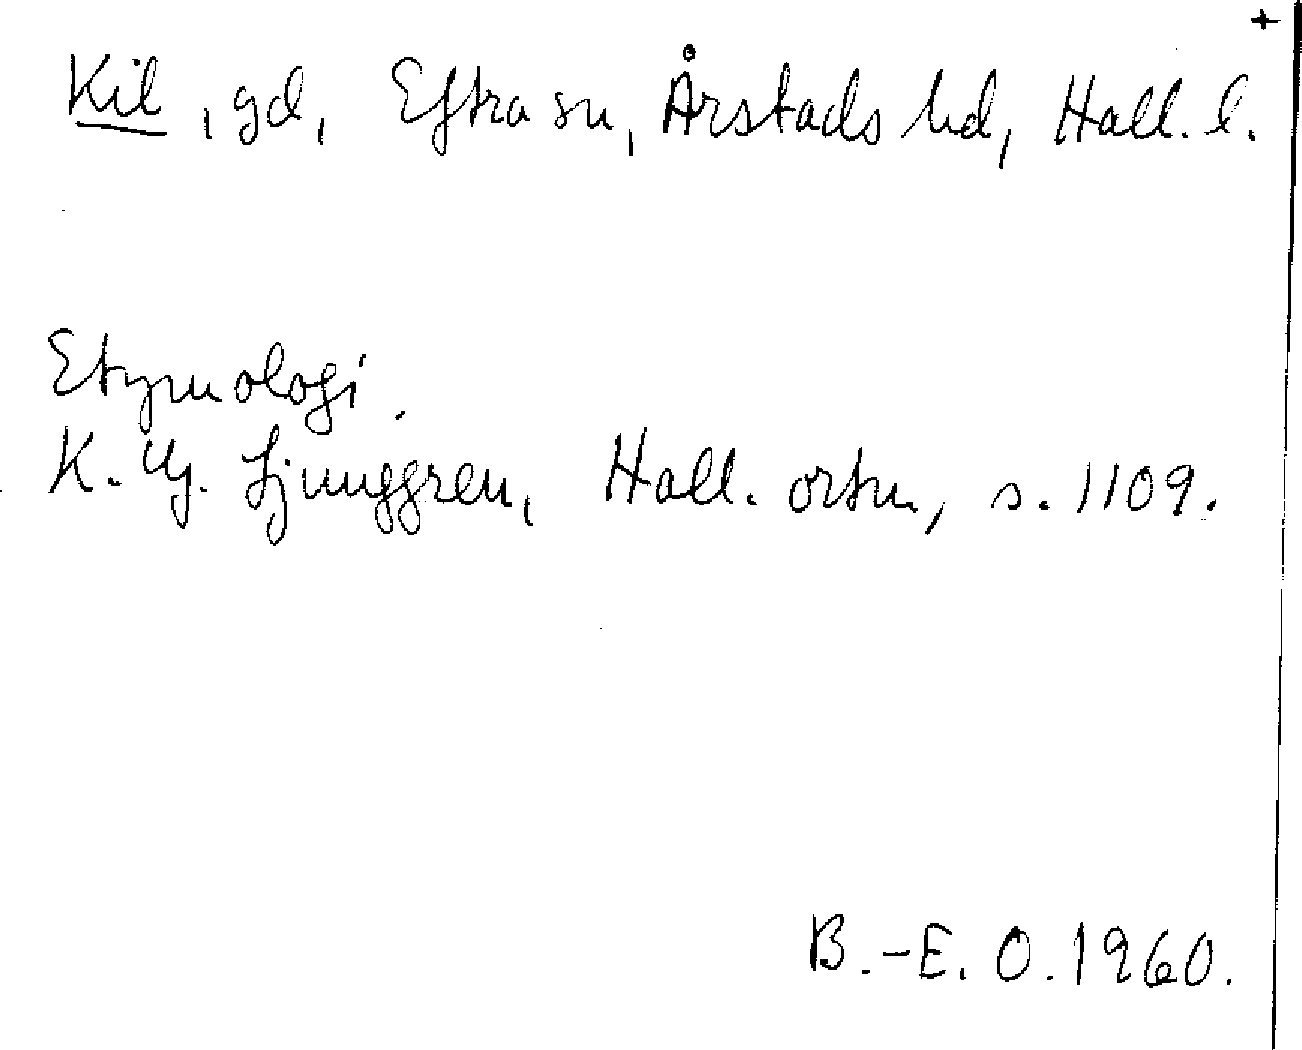 +
Kil, gd, Eftra sn, Årstads hd, Hall. l.
Etymologi.
K. Hj. Ljunggren, Hall. ortn, s. 1109.
B.-E. O. 1960.